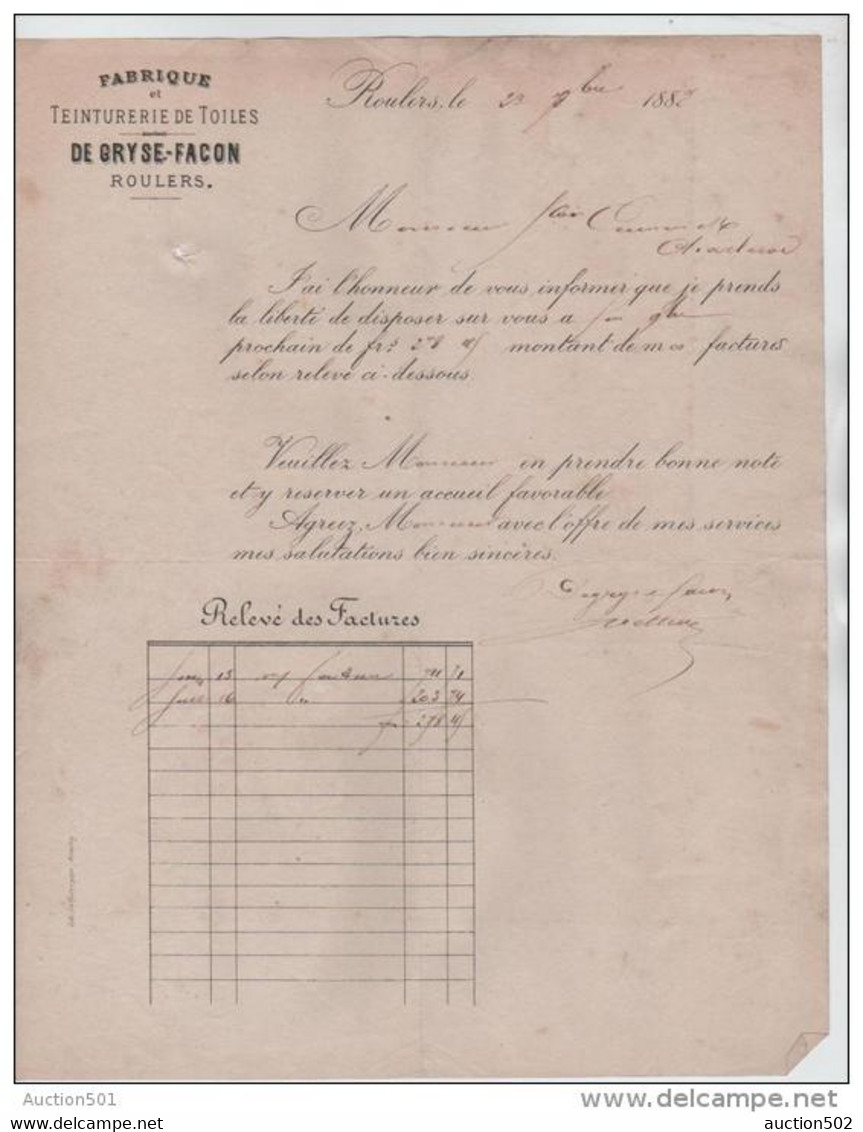 FABRIQUE
et
TEINTURERIE DE TOILES
DE GRYSE-FACON
ROULERS.
Roulers, le 23 bre 1882
Monsieur
J'ai l'honneur de vous informer que je prends
la liberté de disposer sur vous a fin 9bre
prochain de frs 278 45 montant de mes factures
selon relevé ci-dessous.
Veuillez Monsieur en prendre bonne note
et y reserver un accueil favorable
Agreez, Monsieur avec l'offre de mes services
mes salutations bien sincères.
Relevé des Factures
15 facture 71
16 " 203 74
278 45
Auction501
delcampe.net
auction502